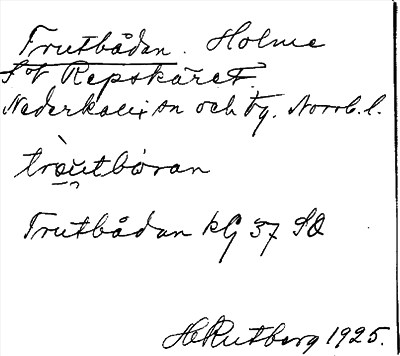 Trutbådan. Holme
S of Repskäret.
Nederkalix sn och tg. Norrb. l.
tròu̯tbòran
Trutbådan kG 37 SO
H Rutberg 1925.